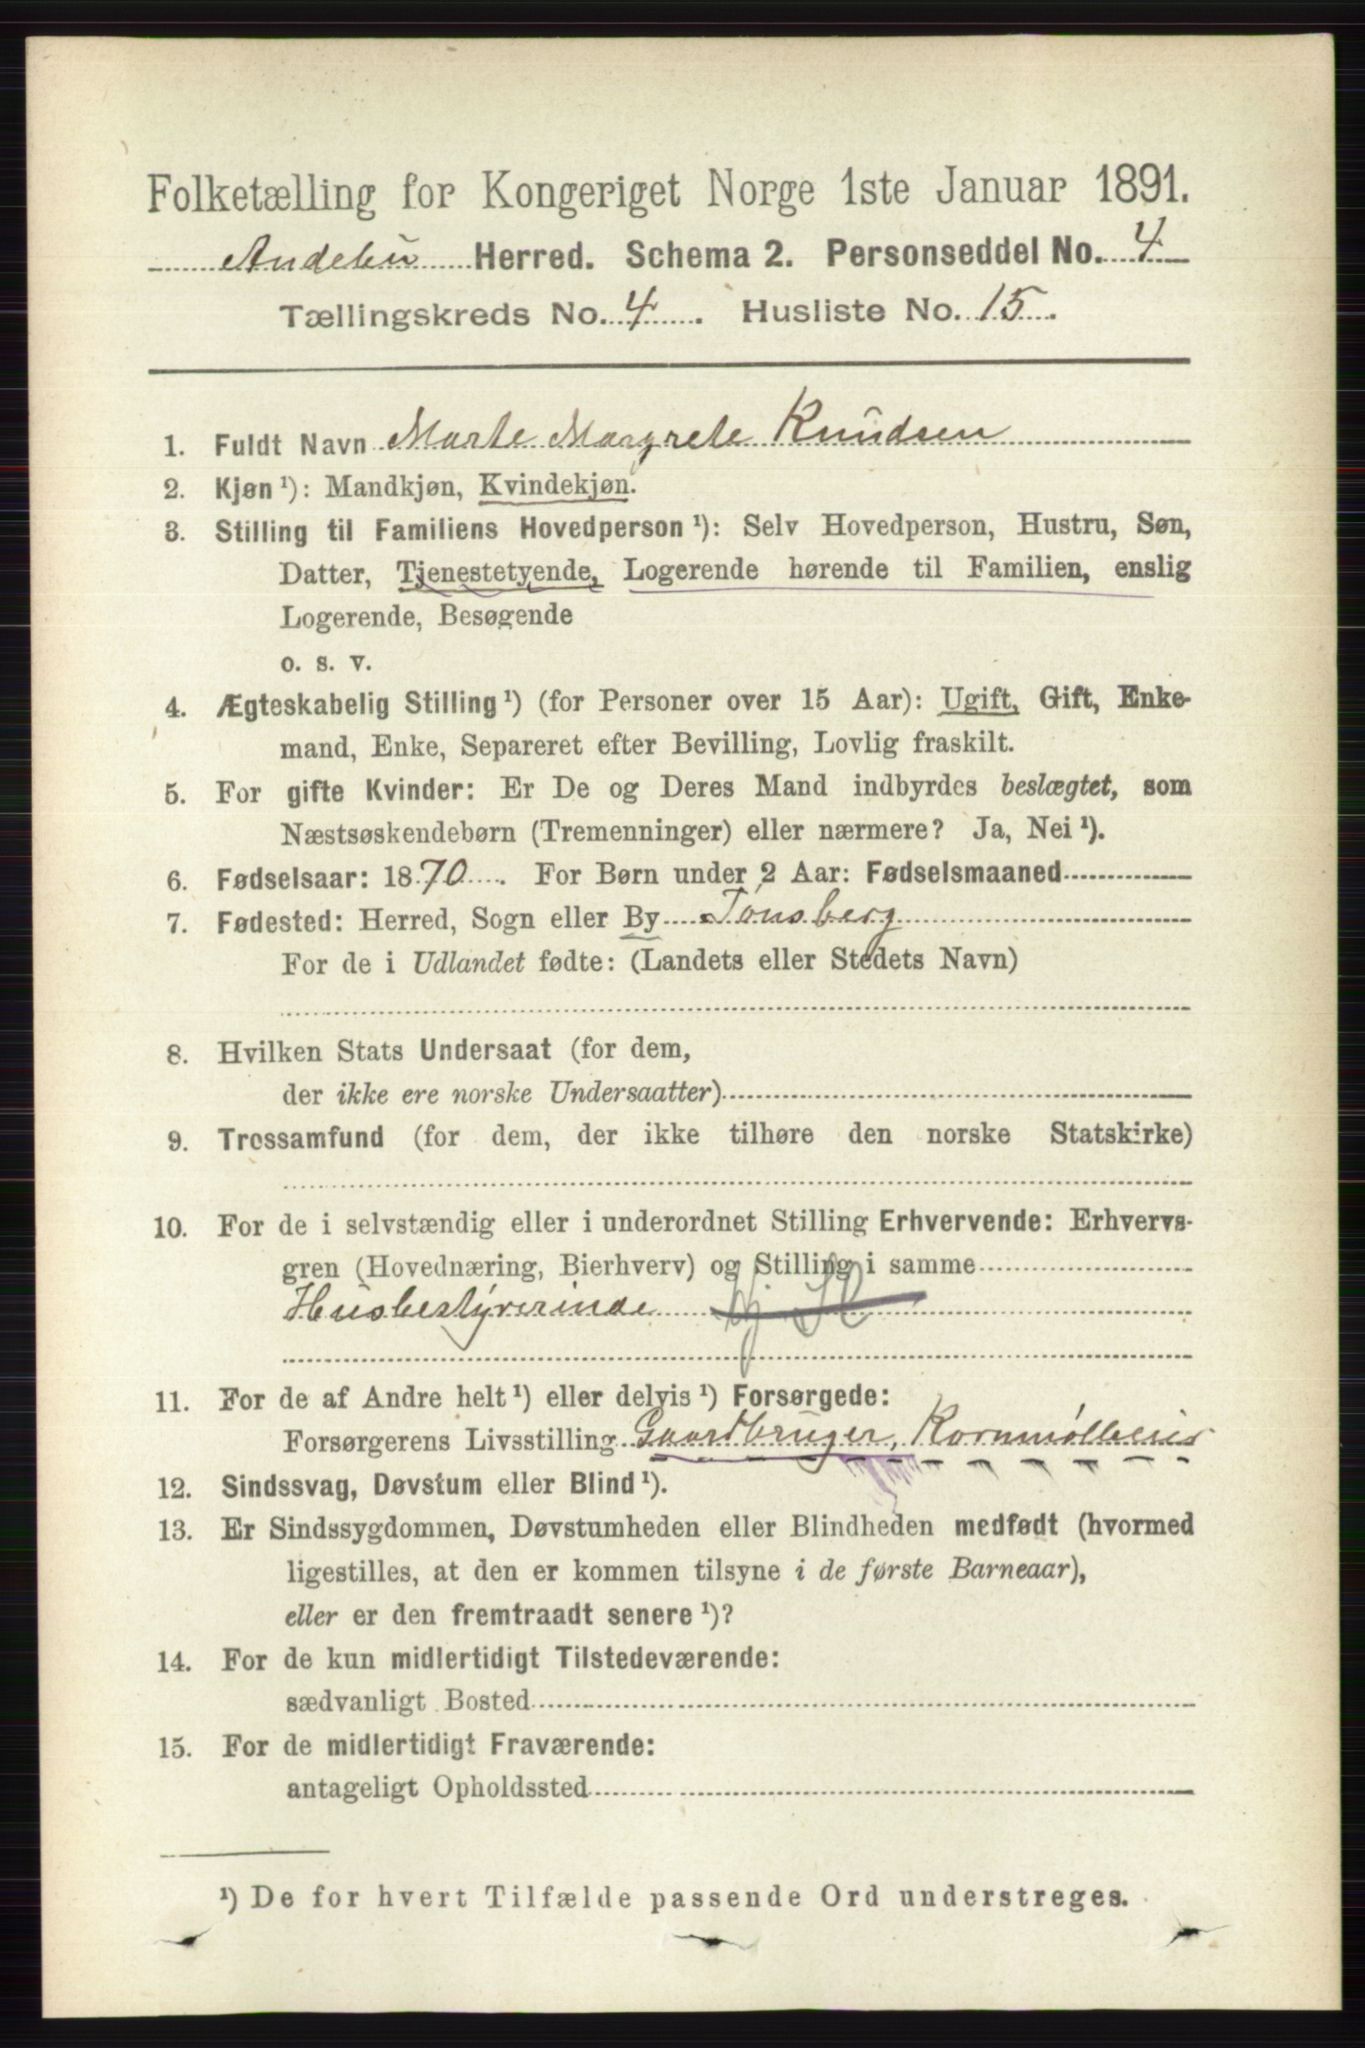 Folketælling for Kongeriget Norge 1ste Januar 1891.
Andebu Herred. Schema 2. Personseddel No. 4
Tællingskreds No. 4. Husliste No. 15.
1. Fuldt Navn Marte Margrete Knudsen
2. Kjøn ¹): Mandkjøn, Kvindekjøn.
3. Stilling til Familiens Hovedperson ¹): Selv Hovedperson, Hustru, Søn,
Datter, Tjenestetyende, Logerende hørende til Familien, enslig
Logerende, Besøgende
o. s. v.
4. Ægteskabelig Stilling ¹) (for Personer over 15 Aar): Ugift, Gift, Enke-
mand, Enke, Separeret efter Bevilling, Lovlig fraskilt.
5. For gifte Kvinder: Er De og Deres Mand indbyrdes beslægtet, som
Næstsøskendebørn (Tremenninger) eller nærmere? Ja, Nei ¹).
6. Fødselsaar: 1870. For Børn under 2 Aar: Fødselsmaaned
7. Fødested: Herred, Sogn eller By Tønsberg
For de i Udlandet fødte: (Landets eller Stedets Navn)
8. Hvilken Stats Undersaat (for dem,
der ikke ere norske Undersaatter)
9. Trossamfund (for dem, der ikke tilhøre den norske Statskirke)
10. For de i selvstændig eller i underordnet Stilling Erhvervende: Erhvervs-
gren (Hovednæring, Bierhverv) og Stilling i samme
Husbestyrerinde
11. For de af Andre helt ¹) eller delvis ¹) Forsørgede:
Forsørgerens Livsstilling Gaardbruger, Kornmølleeier
12. Sindssvag, Døvstum eller Blind ¹).
13. Er Sindssygdommen, Døvstumheden eller Blindheden medfødt (hvormed
ligestilles, at den er kommen tilsyne i de første Barneaar),
eller er den fremtraadt senere ¹)?
14. For de kun midlertidigt Tilstedeværende:
sædvanligt Bosted
15. For de midlertidigt Fraværende:
antageligt Opholdssted
¹) De for hvert Tilfælde passende Ord understreges.